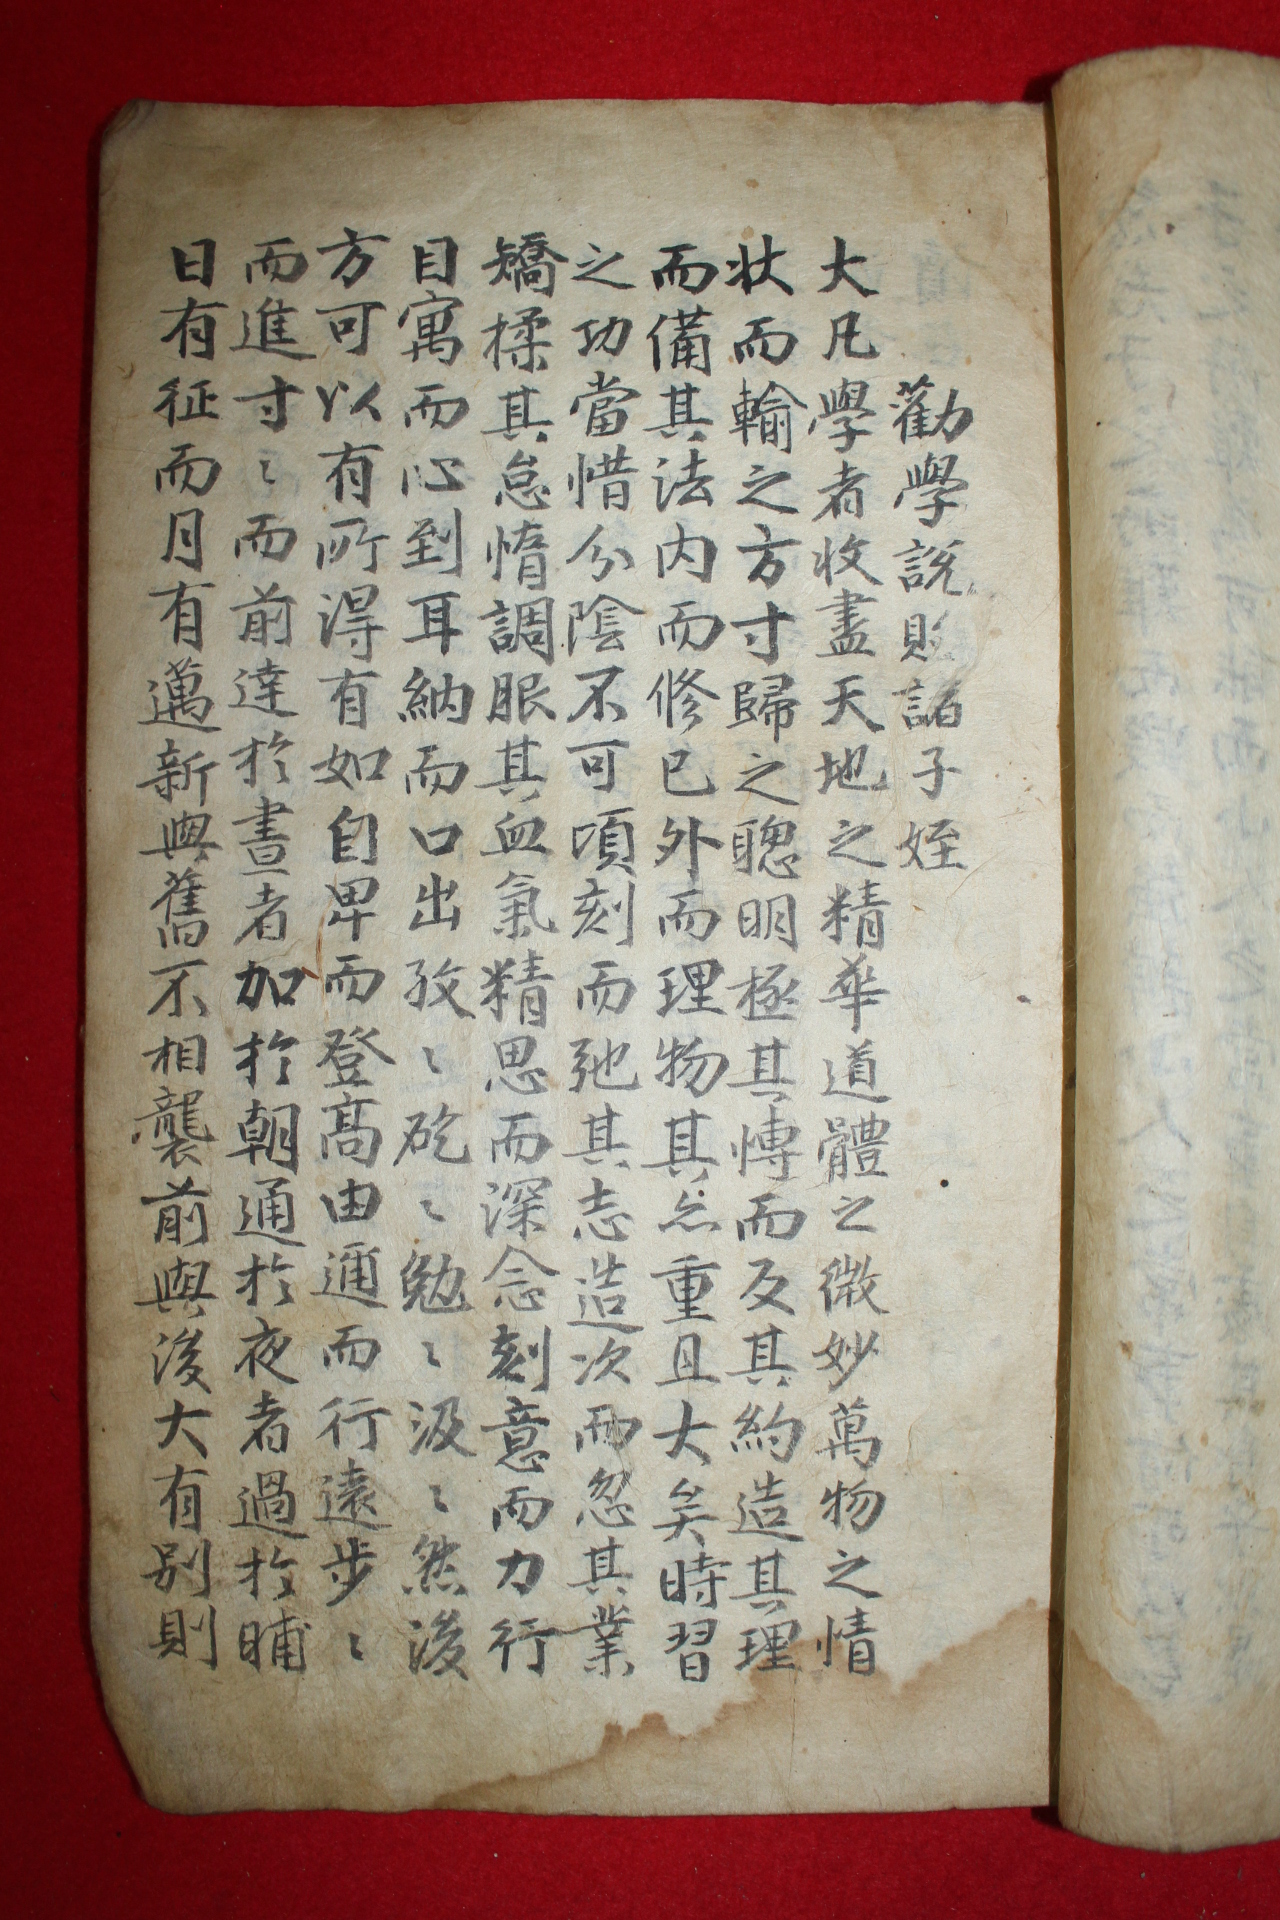 勸學說貽諸子姪
大凡學者收盡天地之精華道體之微妙萬物之情
狀而輸之方寸歸之聰明極其愽而反其約造其理
而備其法內而修已外而理物其㤀重且大矣時習
之功當惜分陰不可頃刻而弛其志造次而忽其業
矯揉其怠惰調服其血氣精思而深念刻意而力行
目寓而心到耳納而口出孜〻矻〻勉〻汲〻然後
方可以有所得有如自卑而登高由邇而行遠步〻
而進寸〻而前達於晝者加於朝通於夜者過於晡
日有征而月有邁新與舊不相襲前與後大有別則